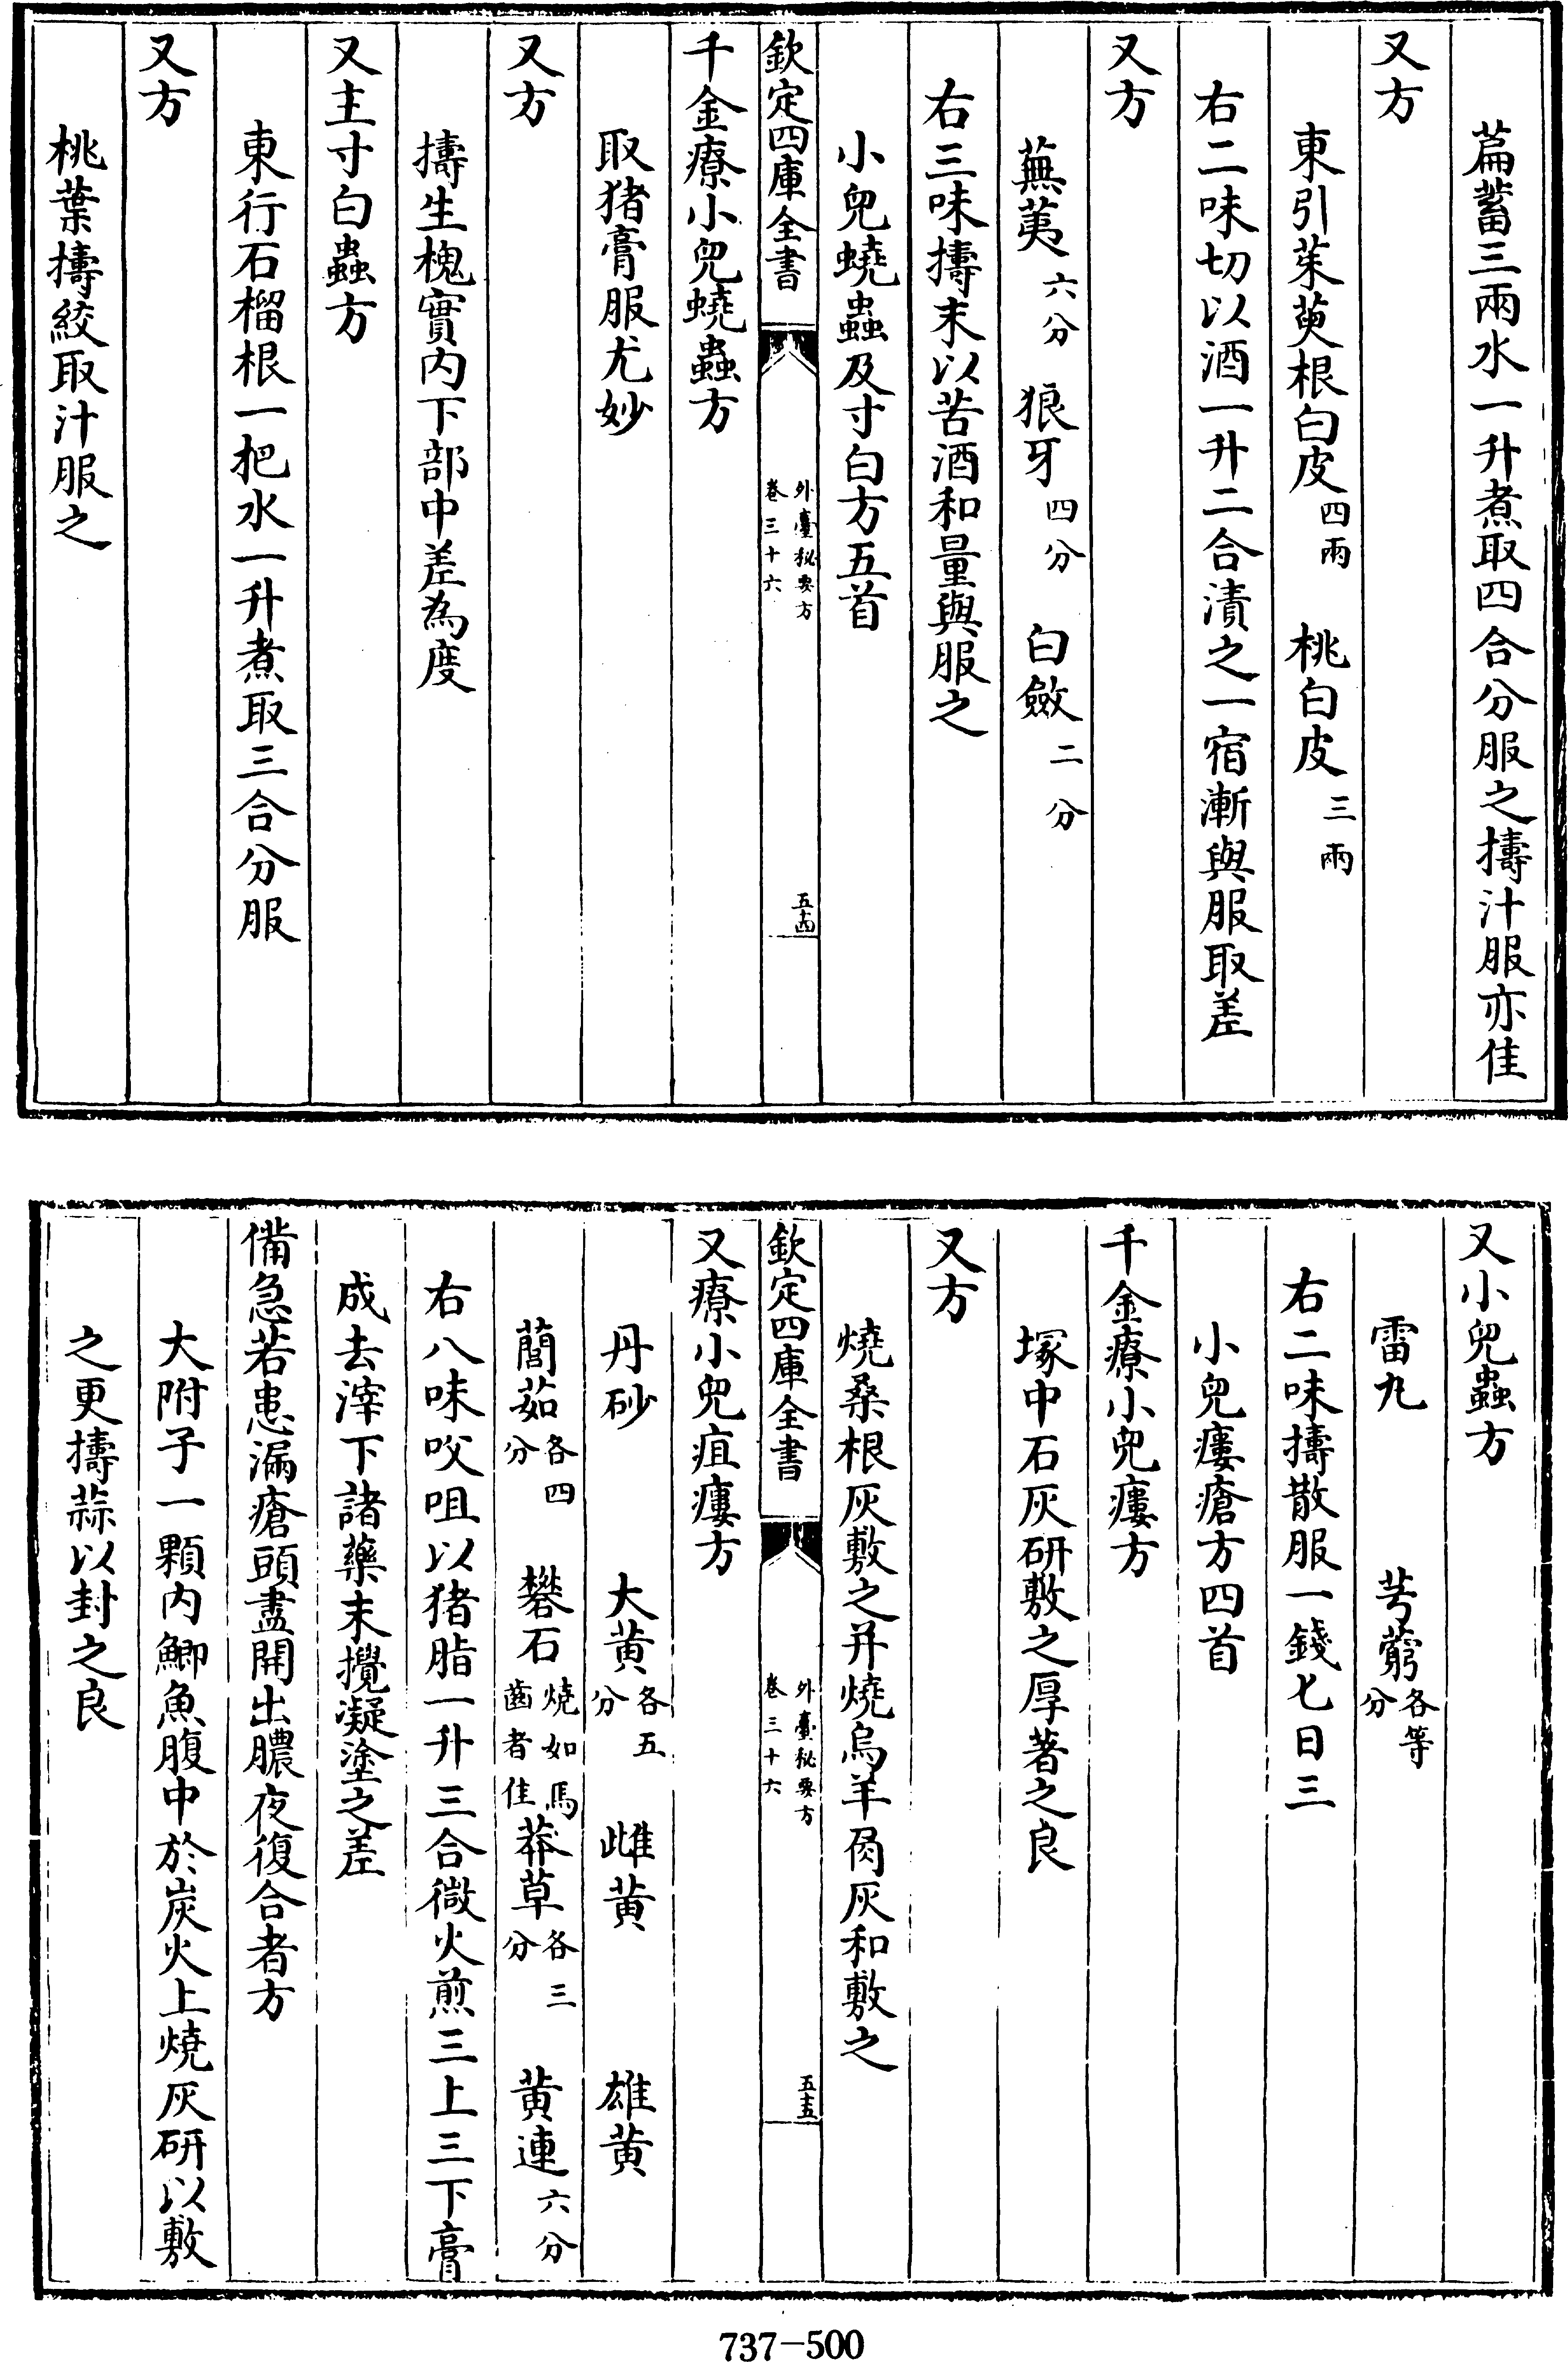 萹蓄三兩水一升煮取四合分服之擣汁服亦佳
又方
東引茱萸根白皮四兩 桃白皮三兩
右二味切以酒一升二合漬之一宿漸與服取差
又方
蕪荑六分 狼牙四分 白斂二分
右三味擣末以苦酒和量與服之
小兒蟯蟲及寸白方五首
欽定四庫全書 外臺秘要方 卷三十六 五十四
千金療小兒蟯蟲方
取猪膏服尤妙
又方
擣生槐實内下部中差為度
又主寸白蟲方
東行石榴根一把水一升煮取三合分服
又方
桃葉擣絞取汁服之
又小兒蟲方
雷丸 芎藭各等分
右二味擣散服一錢匕日三
小兒瘻瘡方四首
千金療小兒瘻方
塚中石灰研敷之厚著之良
又方
燒桑根灰敷之并燒烏羊角灰和敷之
欽定四庫全書 外臺秘要方 卷三十六 五十五
又療小兒疽瘻方
丹砂 大黄各五分 雌黄 雄黄
藺茹各四分 礬石燒如馬齒者佳 莽草各三分 黄連六分
右八味㕮咀以猪脂一升三合微火煎三上三下膏
成去滓下諸藥末攪凝塗之差
備急若患漏瘡頭盡開出膿夜復合者方
大附子一顆内鯽魚腹中於炭火上燒灰研以敷
之更擣蒜以封之良
737-500